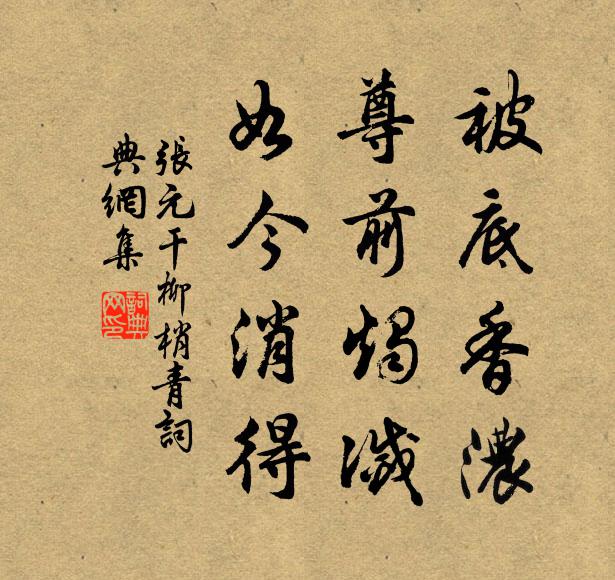 被底香濃
尊前燭滅
如今消得
張元干柳梢青詞
典網集
詞典網印